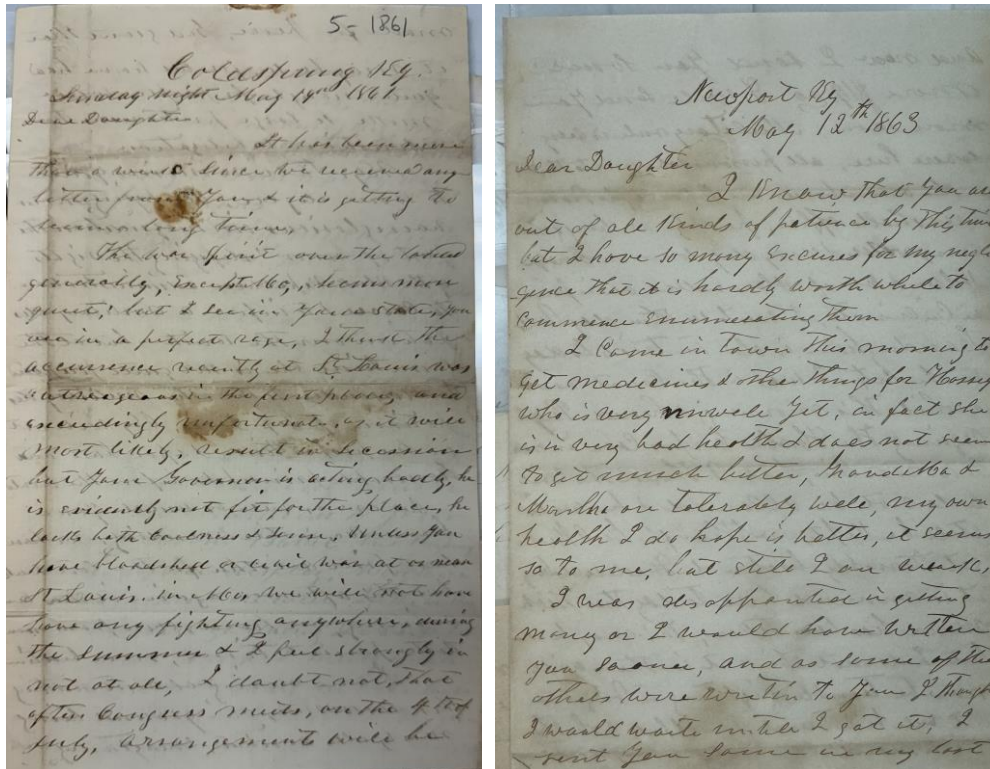 5-1861
Coldspring Ky.
Sunday night May 19th 1861
Dear Daughter
It has been more
than a week since we received any
letter from you & it is getting to
be
The war spirit over the
generally, except Mo, seems more
quiet, but I see in your state, you
are in a perfect rage, I think the
occurrence recently at St Louis was
outrageous in the first place, and
exceedingly unfortunate, as it will
most likely, result in secession
but your Governor is acting badly, he
is evidently not fit for the place, he
lacks both coolness & sense, unless you
have bloodshed or civil war at or near
St Louis, in Mo, we will not have
have any fighting anywhere, during
the summer & I feel strongly in
not at all, I doubt not, that
after Congress meets, on the 4th of
July, arrangements will be
Newport Ky
May 12th 1863
Dear Daughter
I know that you are
out of all kinds of patience by this time
but I have so many excuses for my negli
gence that it is hardly worth while to
commence enumerating them
I come in town this morning to
get medicines & other things for
who is very unwell yet, in fact she
is in very bad health & does not seem
to get much better, Grand Ma &
Martha are tolerably well, my own
health I do hope is better, it seems
so to me, but still I am weak,
I was disappointed in getting
money or I would have written
you sooner, and as some of the
others were writin to you I thought
I would waite untill I got it, I
sent you some in my last